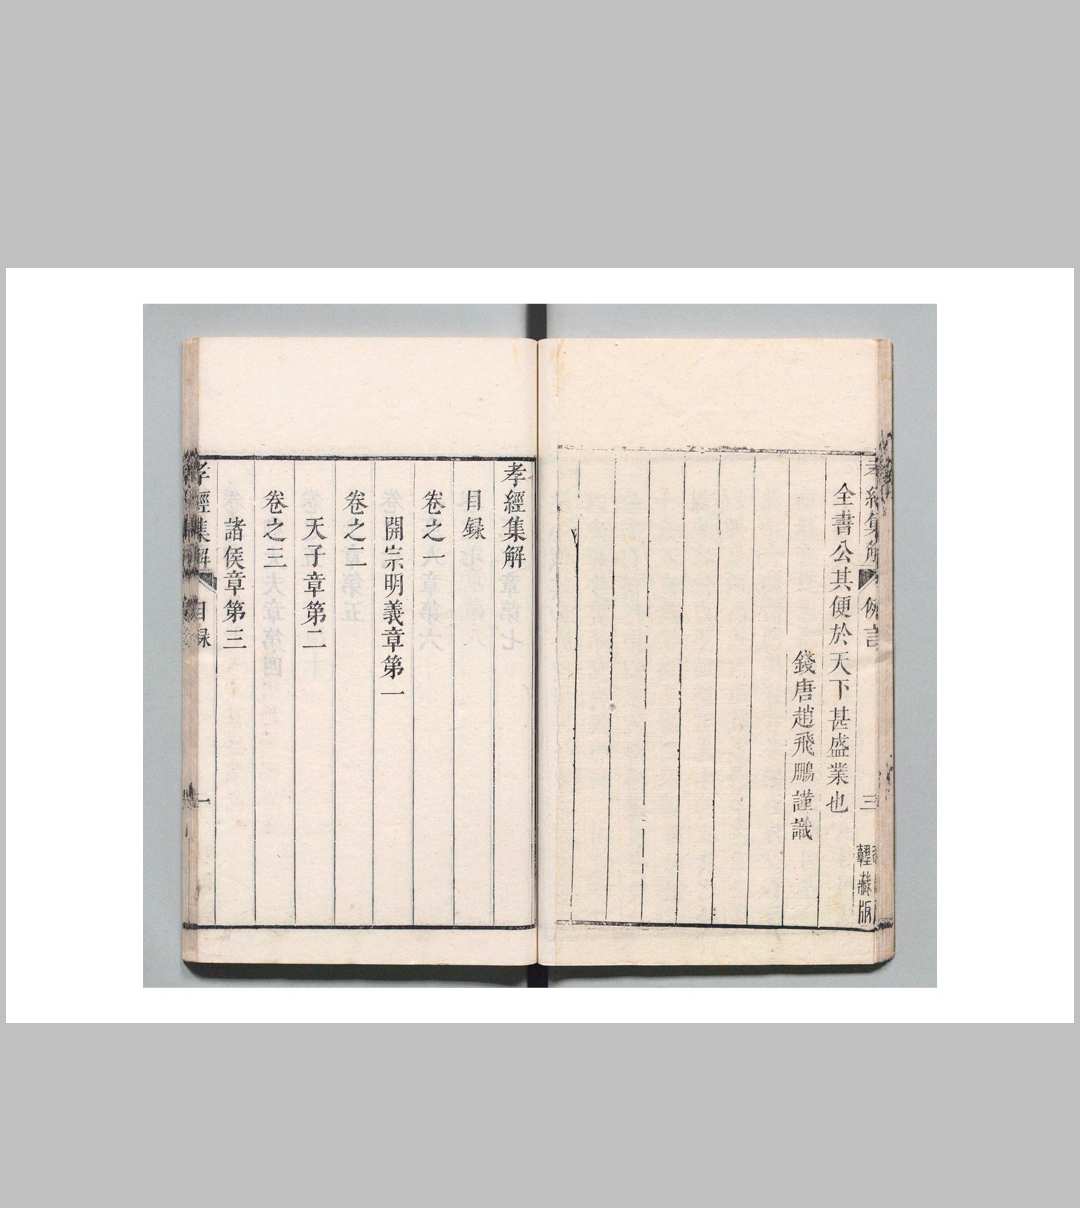 孝經集解 例言 三
全書公其便於天下甚盛業也
錢唐趙飛鵬謹識
藏版
孝經集解
目録
卷之一
開宗明義章第一
卷之二
天子章第二
卷之三
諸侯章第三
孝經集解 目録 一